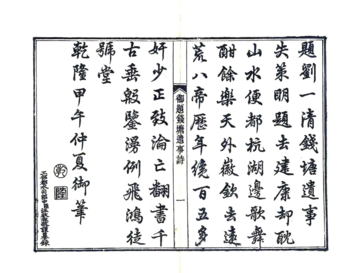 題劉一清錢塘遺事
失策明題去建康却耽
山水便都杭湖邊歌舞
酣餘樂天外徽欽去遠
荒八帝歷年纔百五多
御題錢塘遺事詩
一
奸少正致淪亡翻書千
古垂殷鑒漫例飛鴻徒
號堂
乾隆甲午仲夏御筆